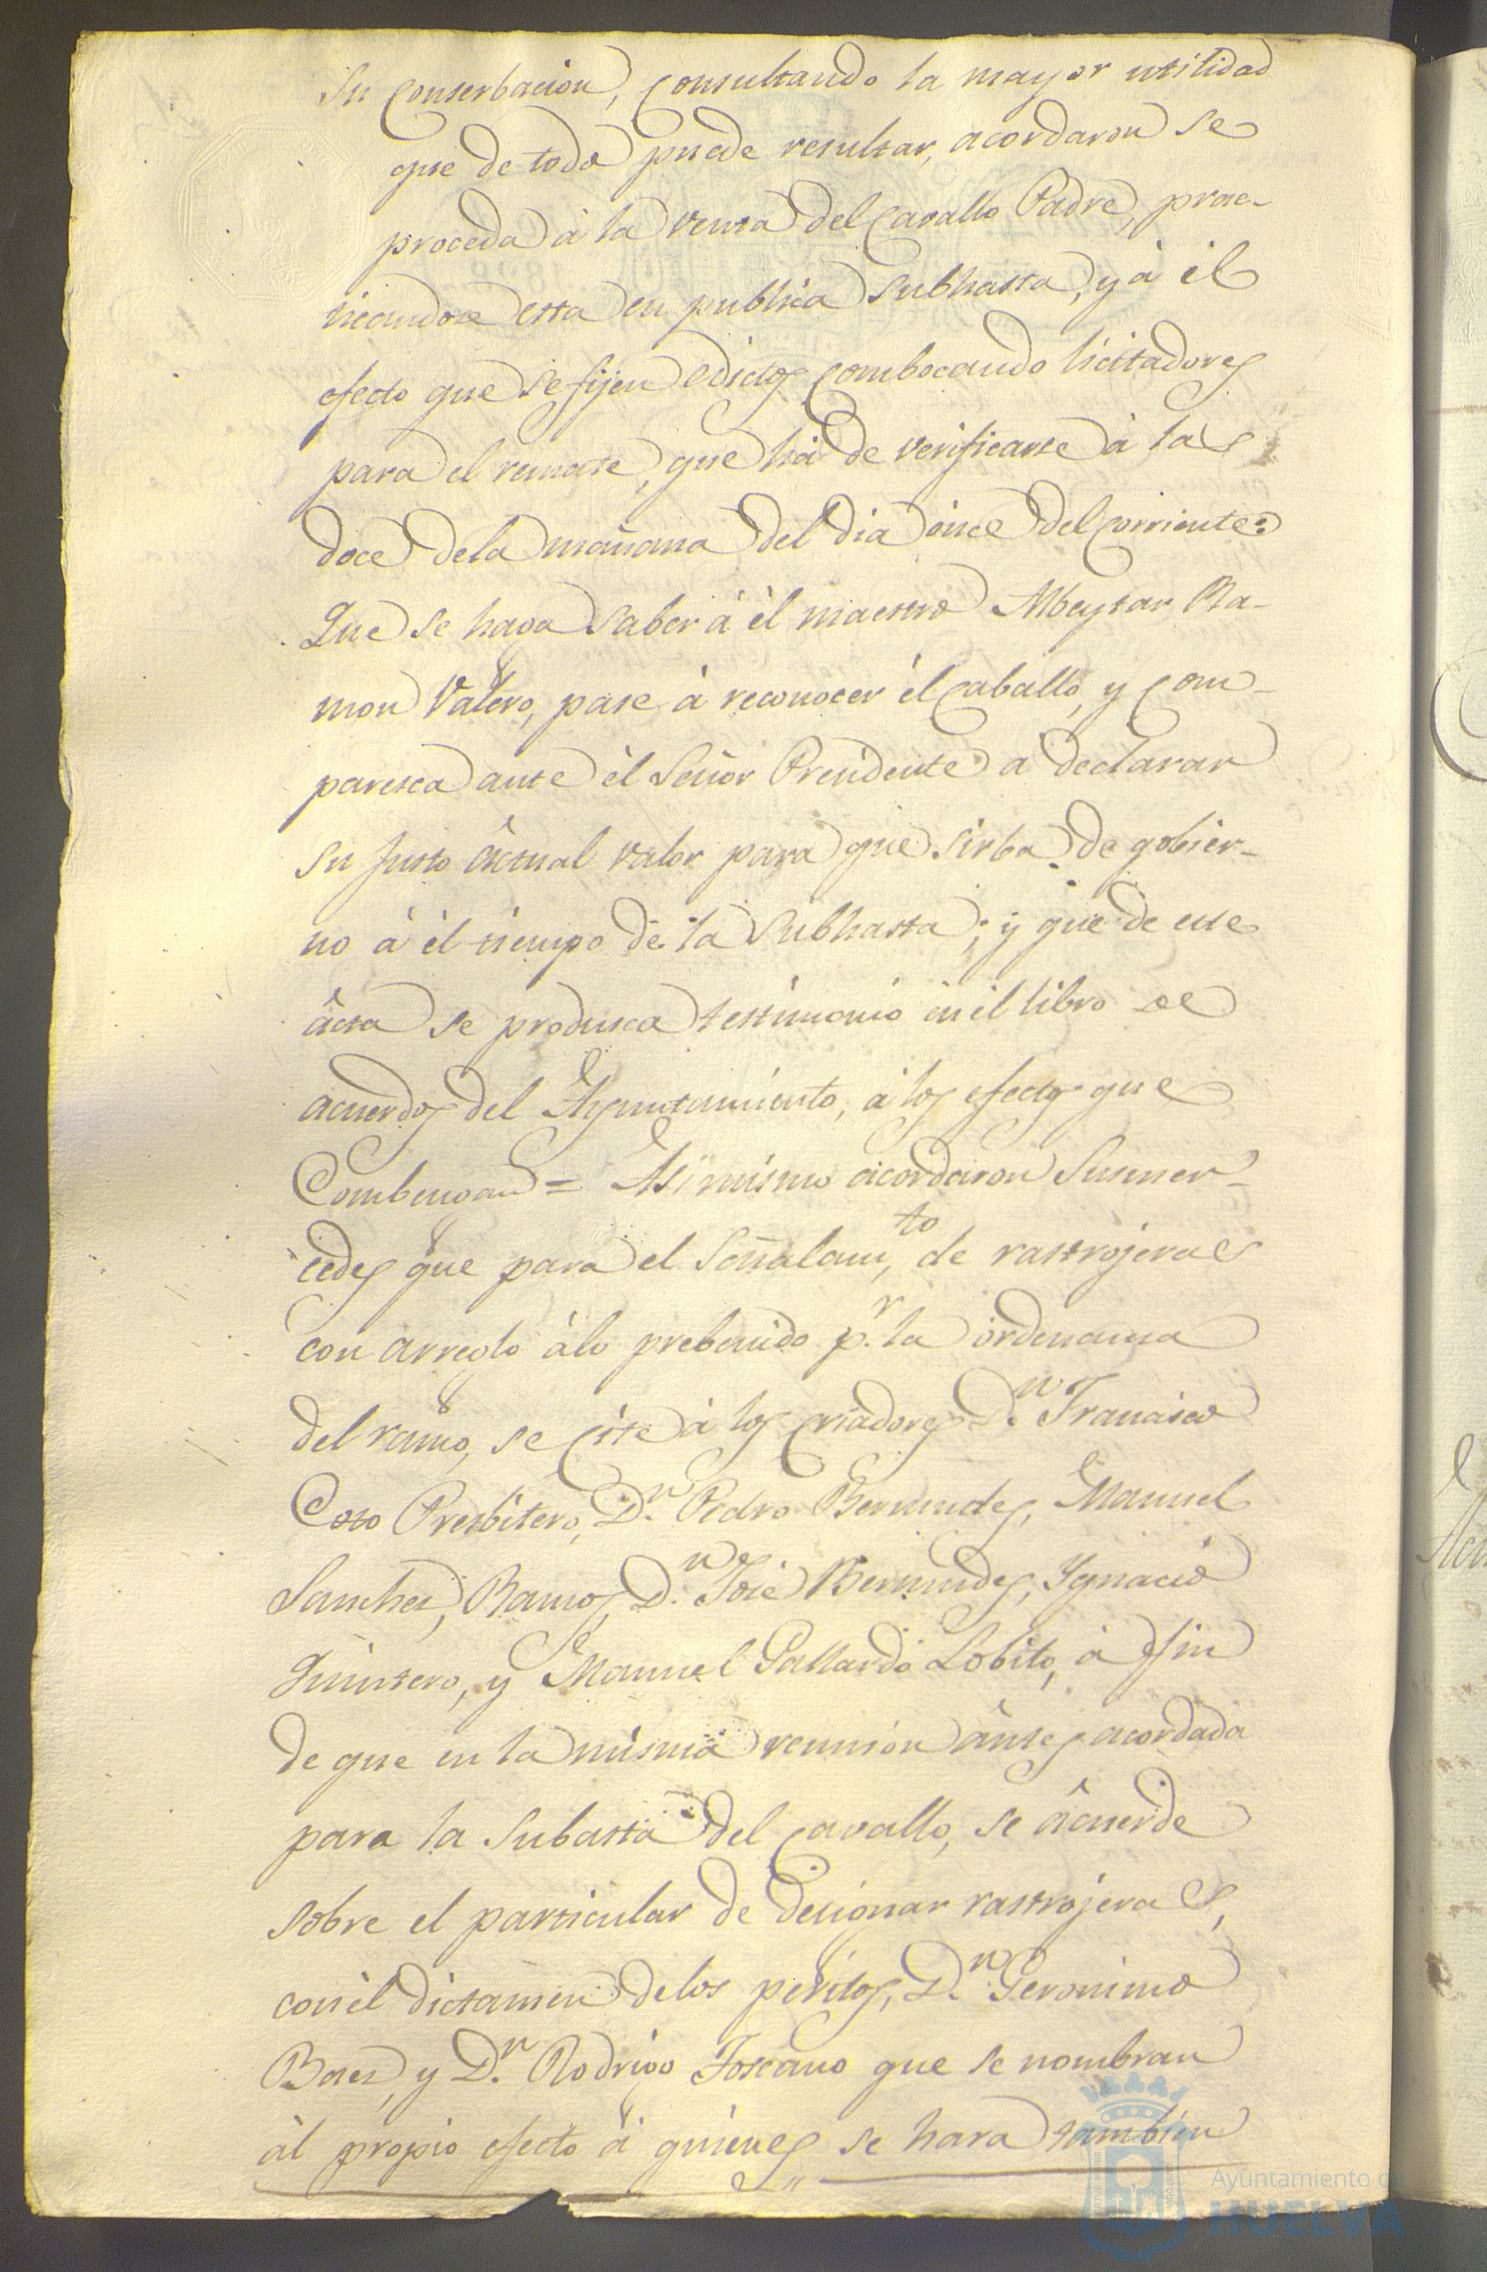 su conserbacion, consultando la mayor utilidad
que de todo puede resultar, acordaron se
proceda à la venta del Cavallo Padre, prac-
ticandose esta en publica subhasta, y à él
efecto que se fijen edictos combocando licitadores
para el remate, que hà de verificarse à las
doce dela mañana del dia once del corriente:
Que se haga saber á él maestro Albeytar Ra-
mon Valero, pase à reconocer él Caballo, y com-
paresca ante él Señor Presidente à declarar
su justo àctual valor para que sirba de gobier-
no à él tiempo de la subhasta; y que de este
àcta se produsca testimonio en él libro de
acuerdos del Ayuntamiento, à los efectos que
Combengan = Asi mismo acordaron Susmer-
cedes que para el señalam.to de rastrojeras
con arreglo àlo prebenido p.r la ordenansa
del ramo, se cite à los criadores D.n Francisco
Coto Presbitero, D.n Pedro Bermudes, Manuel
Sanchez, Ramos, D.n José Bermudes, Ygnacio
Quintero, y Manuel Gallardo Lobito, à fin
de que en la misma reunion àntes acordada
para la subasta del cavallo, se àcuerde
sobre el particular de designar rastrojeras,
con èl dictamen delos peritos, D.n Geronimo
Baez, y D.n Rodrigo Toscano que se nombran
àl propio efecto à quienes se hara tambien
Ayuntamiento de
HUELVA